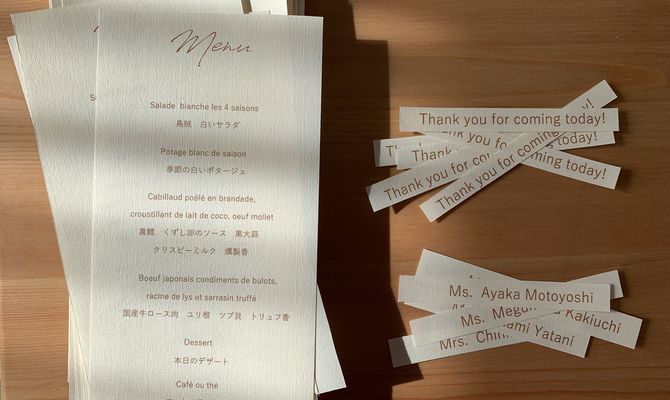 Menu
Salade blanche les 4 saisons
烏賊　白いサラダ
Potage blanc de saison
季節の白いポタージュ
Cabillaud poêlé en brandade,
croustillant de lait de coco, oeuf mollet
真鱈　くずし卵のソース　黒大蒜
クリスピーミルク　燻製香
Boeuf japonais condiments de bulots,
racine de lys et sarrasin truffé
国産牛ロース肉　ユリ根　ツブ貝　トリュフ香
Dessert
本日のデザート
Café ou thé
Thank you for coming today!
Thank you for coming today!
Thank you for coming today!
Thank you for coming today!
Ms. Ayaka Motoyoshi
Ms. Kakiuchi
Mrs. Yatani